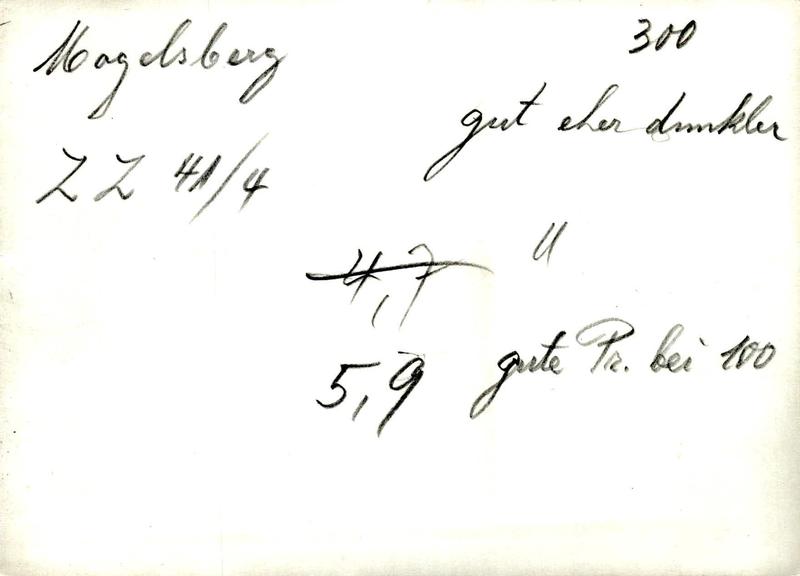 Mogelsberg
300
gut eher dunkler
ZZ 41/4
4,7 "
5,9 gute Pr. bei 100